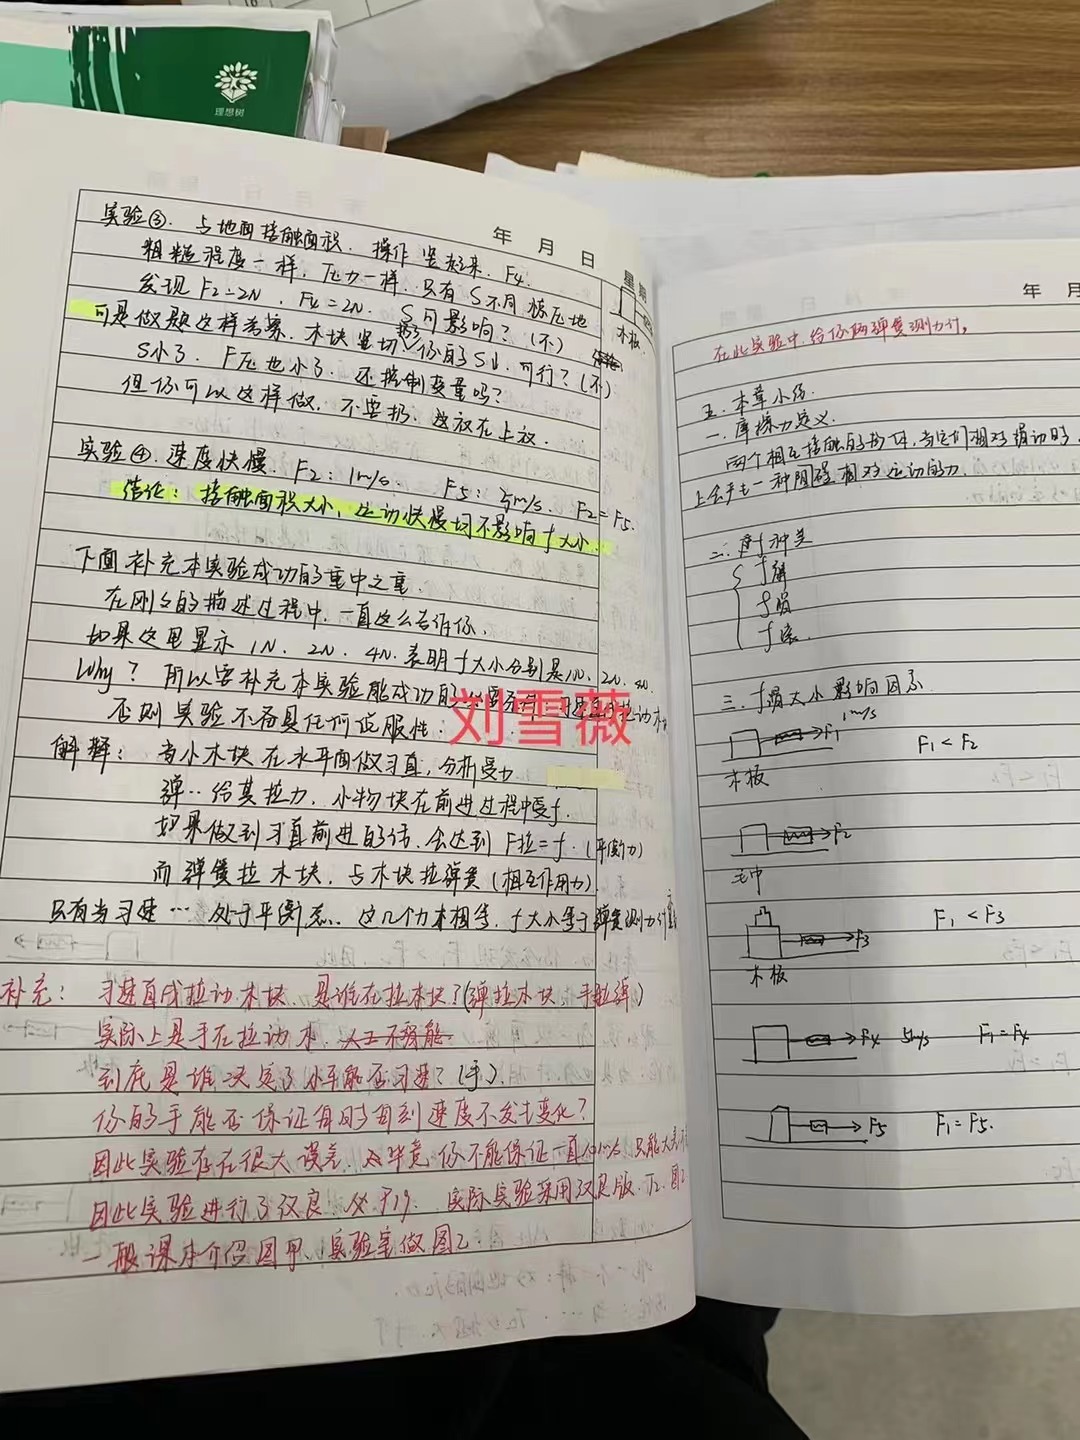 理想树
年 月 日 星期
实验③. 与地面接触面积. 操作 竖起来. F4.
粗糙程度一样, 压力一样. 只有 S不同
发现 F2=2N. F4=2N. S 可影响? (不)
可是做题这样考察. 木块竖切 你的S小. 可行? (不)
S小了. F压也小了. 还控制变量吗?
但你可以这样做. 不要扔. 放在上放.
木板.
实验④. 速度快慢. F2: 1m/s. F5: 5m/s. F2=F5.
结论: 接触面积大小, 运动快慢均不影响f大小.
下面补充本实验成功的重中之重.
在刚才的描述过程中. 一直这么告诉你.
如果这里显示 1N. 2N. 4N. 表明f大小分别是1N. 2N. 4N.
Why? 所以要补充本实验能成功的
刘雪薇
否则实验不再具任何说服性:
解释: 当小木块在水平面做匀直, 分析受力
弹.. 给其拉力. 小物块在前进过程中受f.
如果做到匀直前进的话. 会达到 F拉=f. (平衡力)
而弹簧拉木块. 与木块拉弹簧 (相互作用力)
只有当匀速 … 处于平衡态. 这几个力才相等. f大小等于弹簧测力计
补充: 匀速直线拉动木块. 是谁在拉木块? (弹拉木块. 手拉弹)
实际上是手在拉动木.
到底是谁决定了水平能否匀速? (手).
你的手能否保证每时每刻速度不发生变化?
因此实验存在很大误差. 毕竟你不能保证一直1m/s 只能大
因此实验进行了改良. 实际实验采用改良版.
一般课本介绍图甲. 实验室做图乙.
年 月
在此实验中. 给你的弹簧测力计,
五. 本章小结.
一. 摩擦力定义.
两个相互接触的物体, 当它们相对滑动时.
上会产生一种阻碍相对运动的力.
二. 种类
f静
f滑
f滚.
三. f滑大小影响因素.
F1 1m/s F1<F2
木板
F2
毛巾
F3 F1<F3
木板
F4 5m/s F1=F4
F5 F1=F5.